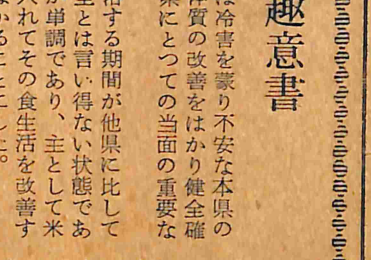 趣意書
は冷害を蒙り不安な本県の
体質の改善をはかり健全確
業にとつての当面の重要な
活する期間が他県に比して
全とは言い得ない状態であ
が単調であり、主として米
入れてその食生活を改善す
かることにした。